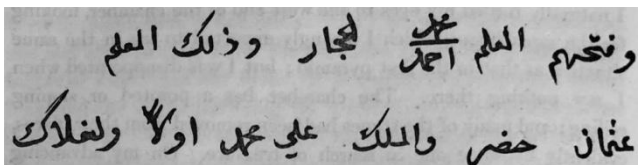 وفتحهم المعلم محمد احمد لحجار وذلك المعلم
عثمان حضر والملك علي محمد اولاً ولغلاك